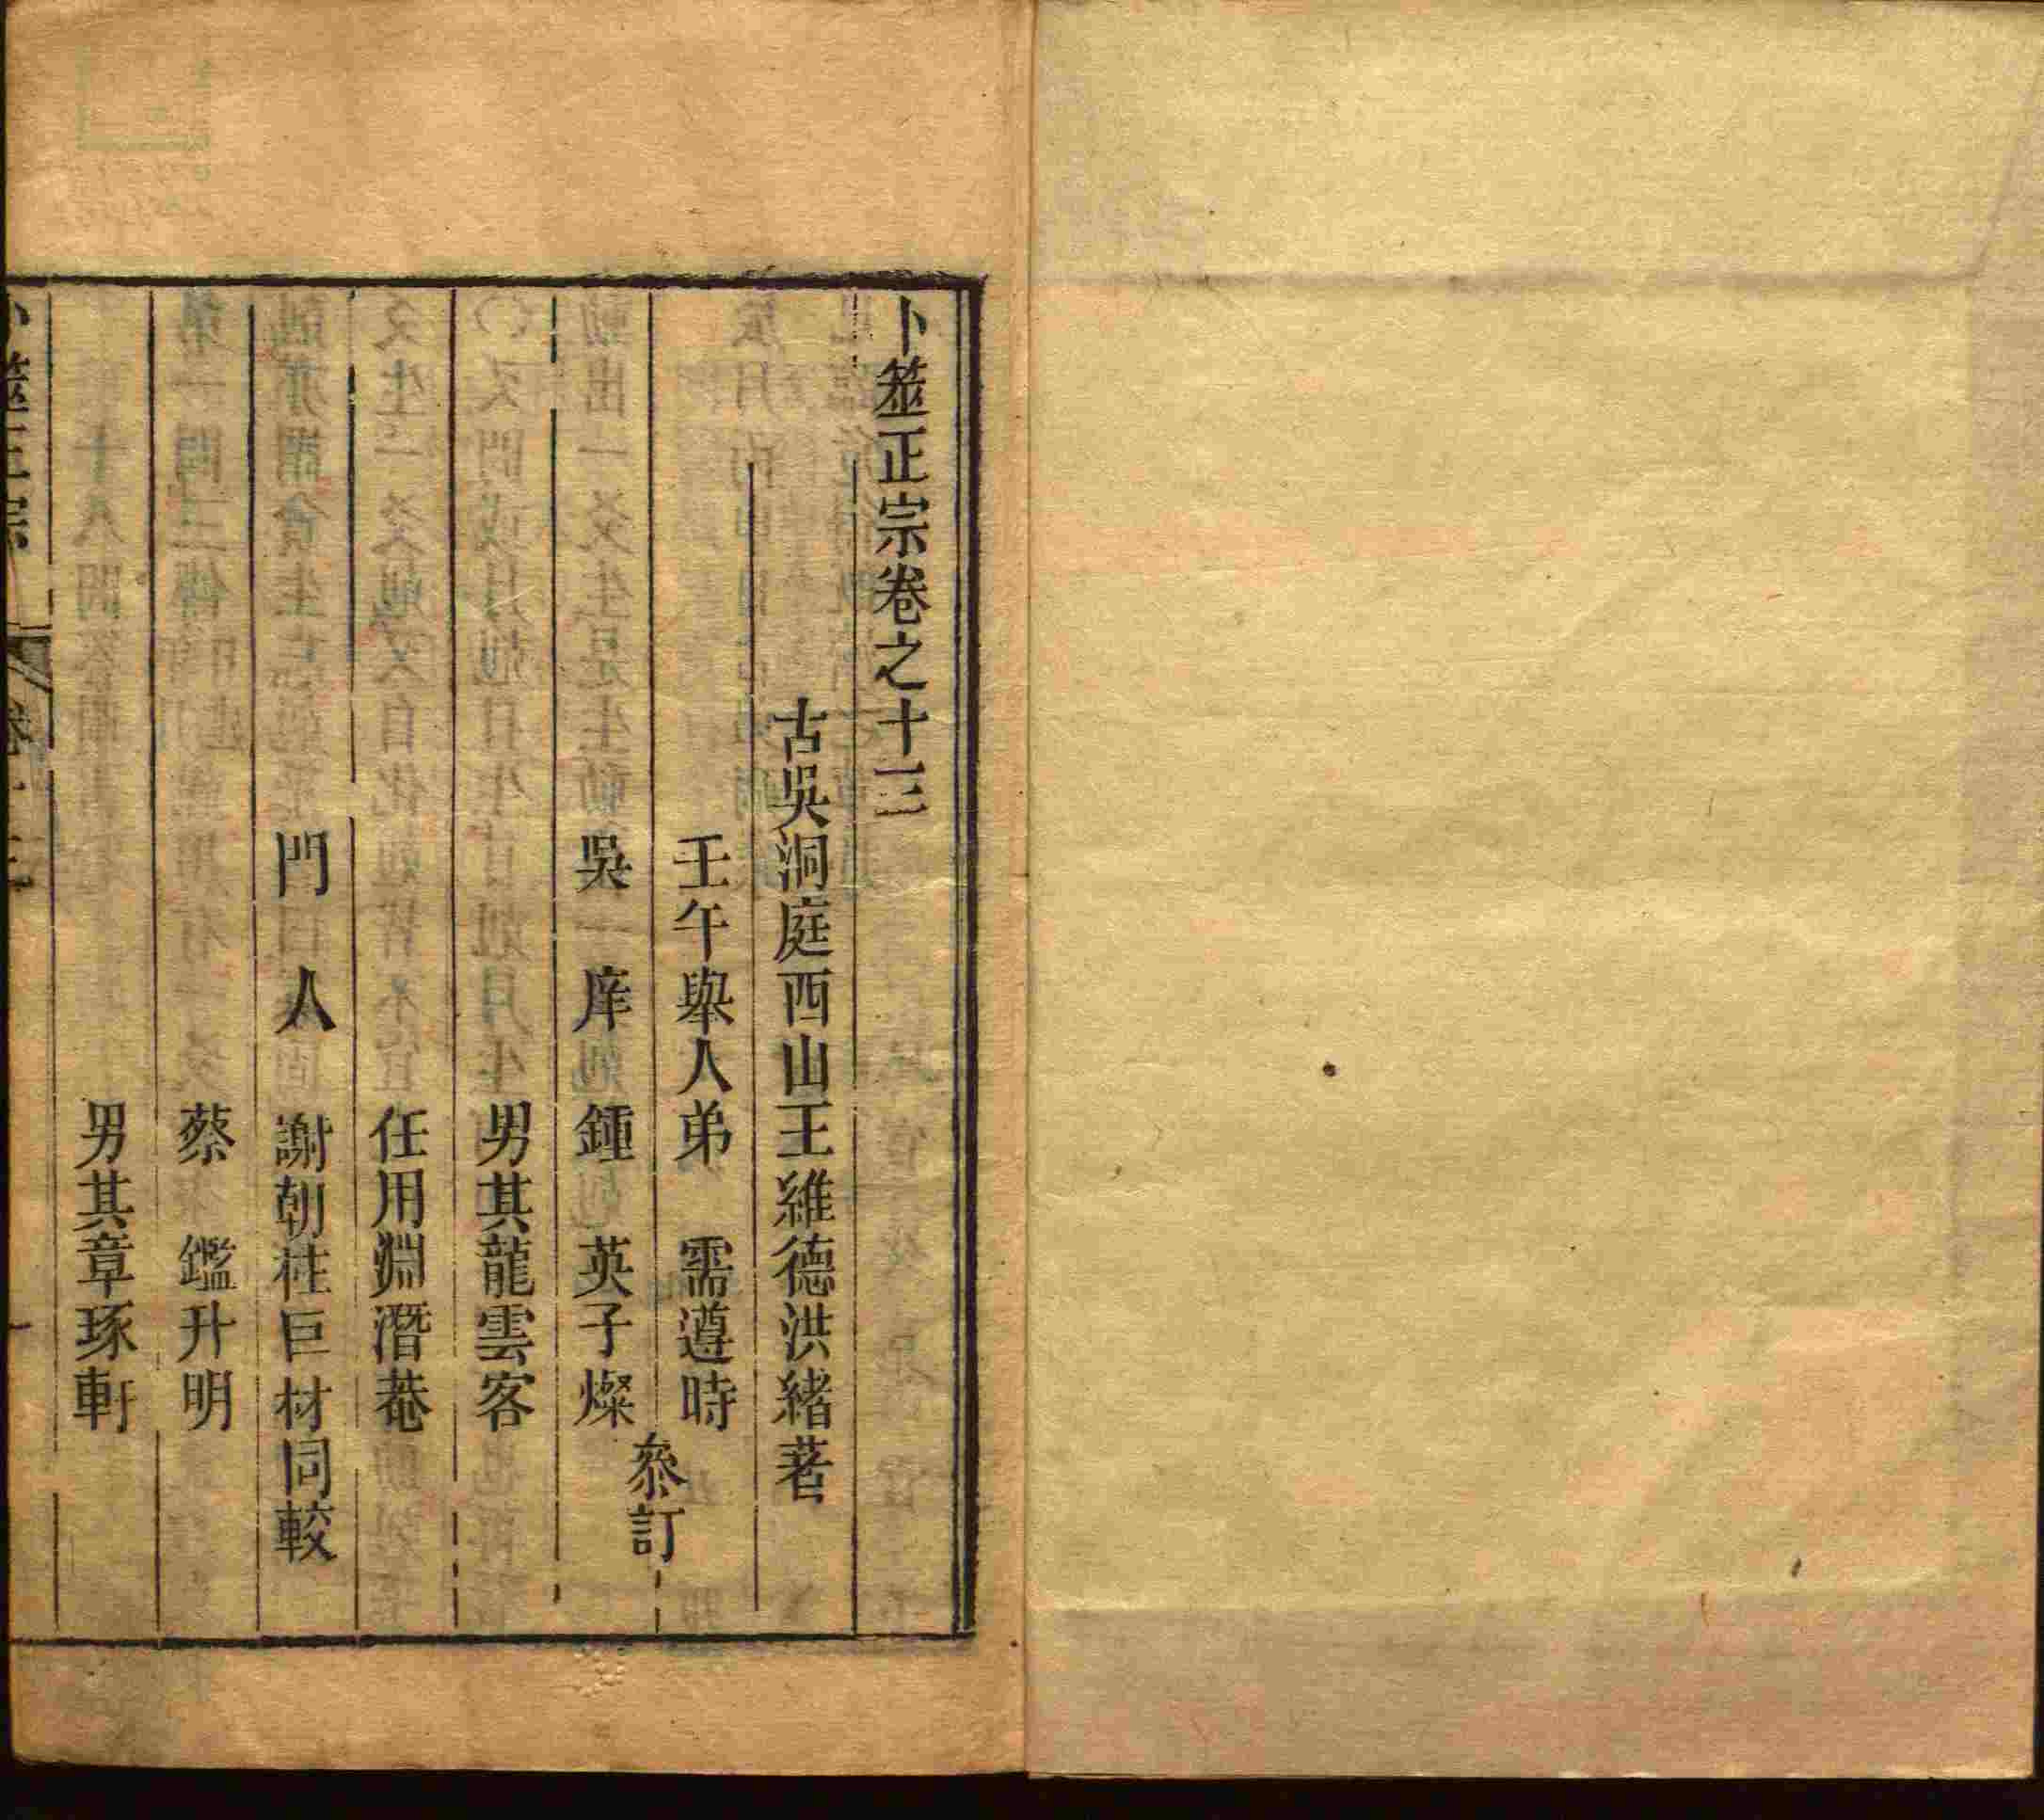 卜筮正宗卷之十三
古吳洞庭西山王維德洪緒著
壬午舉人弟 需遵時
吳 庠 鍾 英子燦
參訂
男其龍雲客
任用淵潛菴
門 人 謝朝柱巨材同較
蔡 鑑升明
男其章琢軒
卜筮正宗 卷十三 一